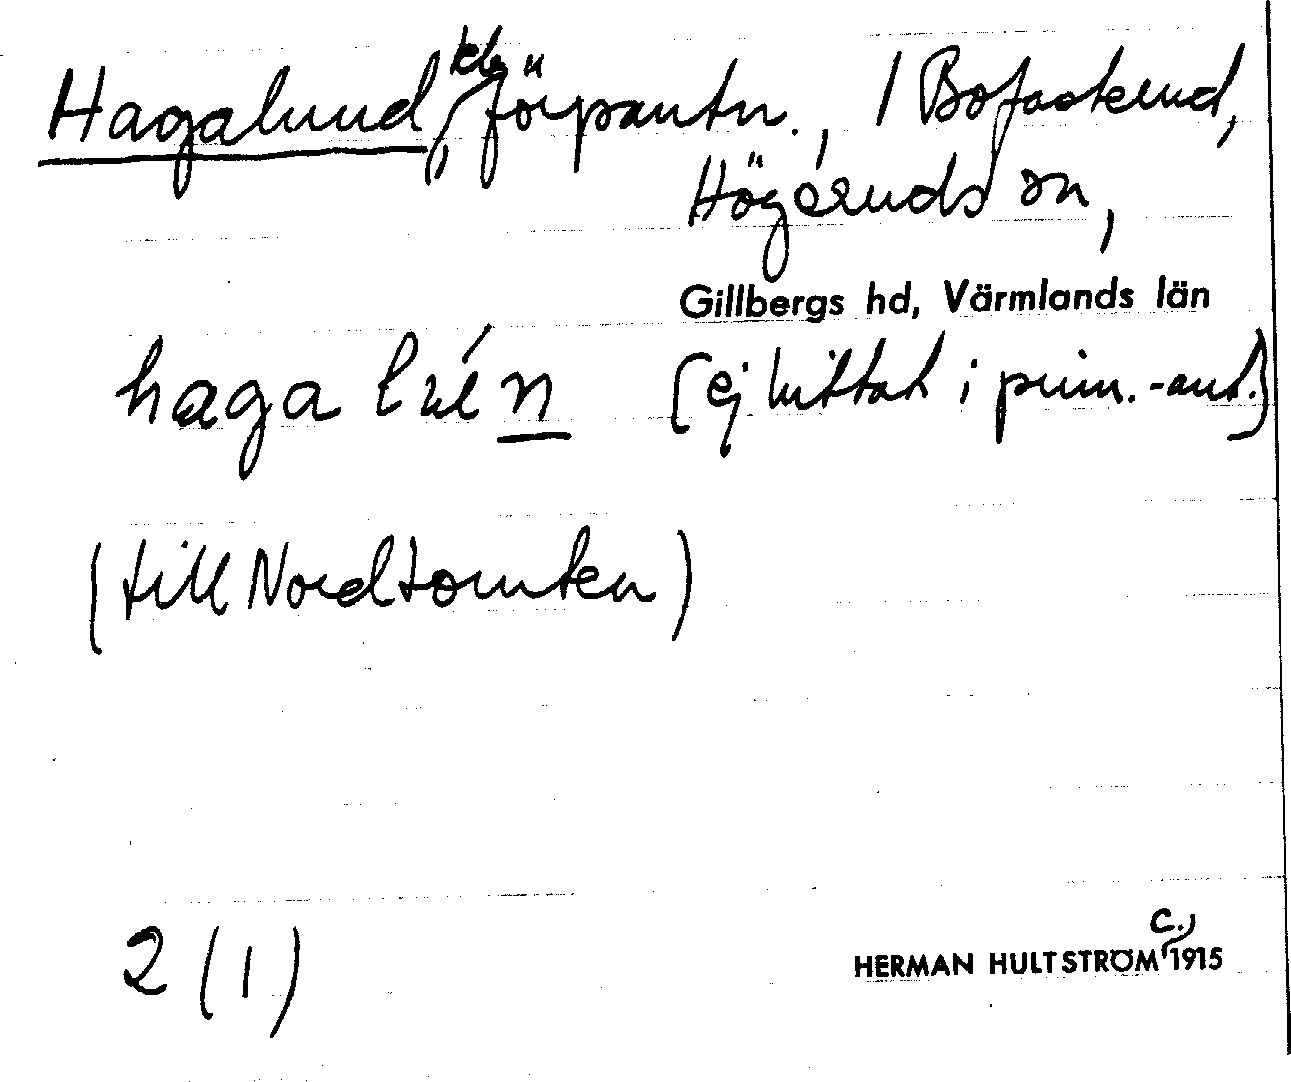 Hagalund, klg förpantn., 1 Bofasterud,
Högeruds sn,
Gillbergs hd, Värmlands län
haga lué n (ej hittat i prim.-ant.)
(till Nordtomten)
2 (1)
HERMAN HULTSTRÖM c. 1915